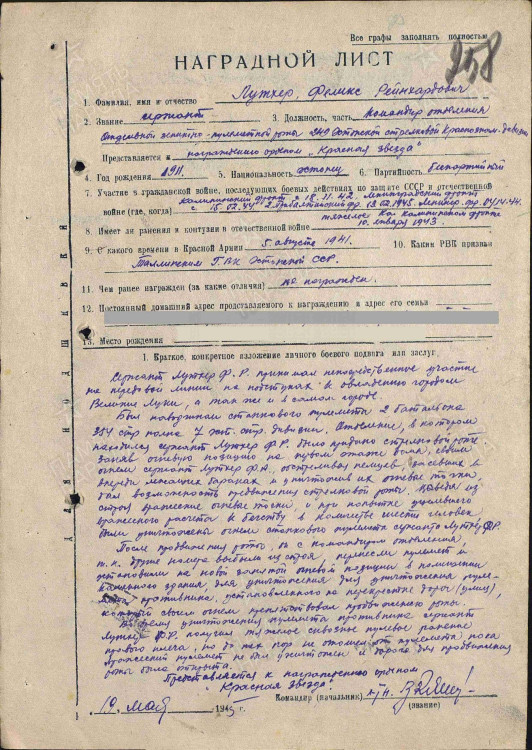 Все графы заполнять полностью
258
НАГРАДНОЙ ЛИСТ
1. Фамилия, имя и отчество Лутхер, Феликс Рейнхардович
2. Звание сержант 3. Должность, часть командир отделения
Отдельной зенитно-пулеметной роты 249 Эстонской стрелковой Краснознам. дивизии
Представляется к награждению орденом „Красная звезда"
4. Год рождения 1911. 5. Национальность эстонец 6. Партийность беспартийный
7. Участие в гражданской войне, последующих боевых действиях по защите СССР и отечественной
Калининский фронт с 18.11.42. Ленинградский фронт
войне (где, когда) с 15.02.44 2 Прибалтийский фр. 13.02.1945. Ленингр. фр.
8. Имеет ли ранения и контузии в отечественной войне тяжелое На Калининском фронте
10. января 1943.
9. С какого времени в Красной Армии 5. августа 1941. 10. Каким РВК призван
Таллинским ГВК Эстонской ССР.
11. Чем ранее награжден (за какие отличия) не награжден.
12. Постоянный домашний адрес представляемого к награждению и адрес его семьи
13. Место рождения
1. Краткое, конкретное изложение личного боевого подвига или заслуг.
Сержант Лутхер Ф.Р. принимал непосредственное участие
на передовой линии на подступах к овладению городом
Великие Луки, а так же и в самом городе.
Был наводчиком станкового пулемета 2 батальона
354 стр. полка 7 эст. стр. дивизии. Отделение, в котором
находился сержант Лутхер Ф.Р. было придано стрелковой роте.
Заняв огневую позицию на первом этаже дома, своим
огнем сержант Лутхер Ф.Р., обстреливая немцев, засевших в
впереди лежащих гаражах и уничтожив их огневые точки,
дал возможность продвижения стрелковой роты, выведя из
строя вражеские огневые точки, и при попытке уцелевшего
вражеского расчета к бегству в количестве шести человек,
были уничтожены огнем станкового пулемета сержанта Лутхер Ф.Р.
После продвижения роты, он с командиром отделения,
т.к. другие номера выбыли из строя, перенесли пулемет и
установили на новой занятой огневой позиции в помещении
здания для уничтожения для уничтожения пуле-
мета противника, установленного на перекрестке дороги (улиц),
который своим огнем препятствовал продвижению роты.
Во время уничтожения пулемета противника сержант
Лутхер Ф.Р. получил тяжелое сквозное пулевое ранение
правого плеча, но до тех пор не отошел от пулемета пока
вражеский пулемет не был уничтожен и дорога для продвижения
роты была открыта.
Представляется к награждению орденом
„Красная звезда".
Командир (начальник)
(звание)
19. мая 1945 г.